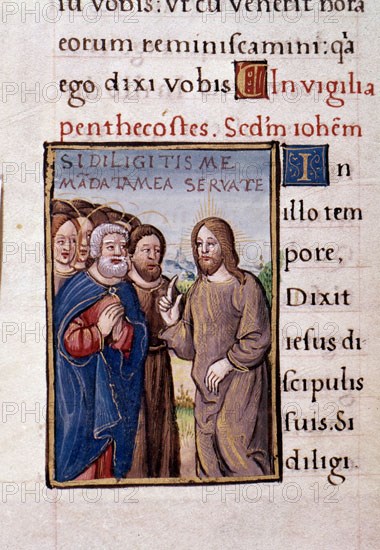 iu vobis: ut cu venerit hora
eorum reminiscamini: qa
ego dixi vobis In vigilia
penthecostes. Scdm iohem
SI DILIGITIS ME
MADATA MEA SERVATE
In
illo tem
pore,
Dixit
iesus di
scipulis
suis. Si
diligi
PHOTO12